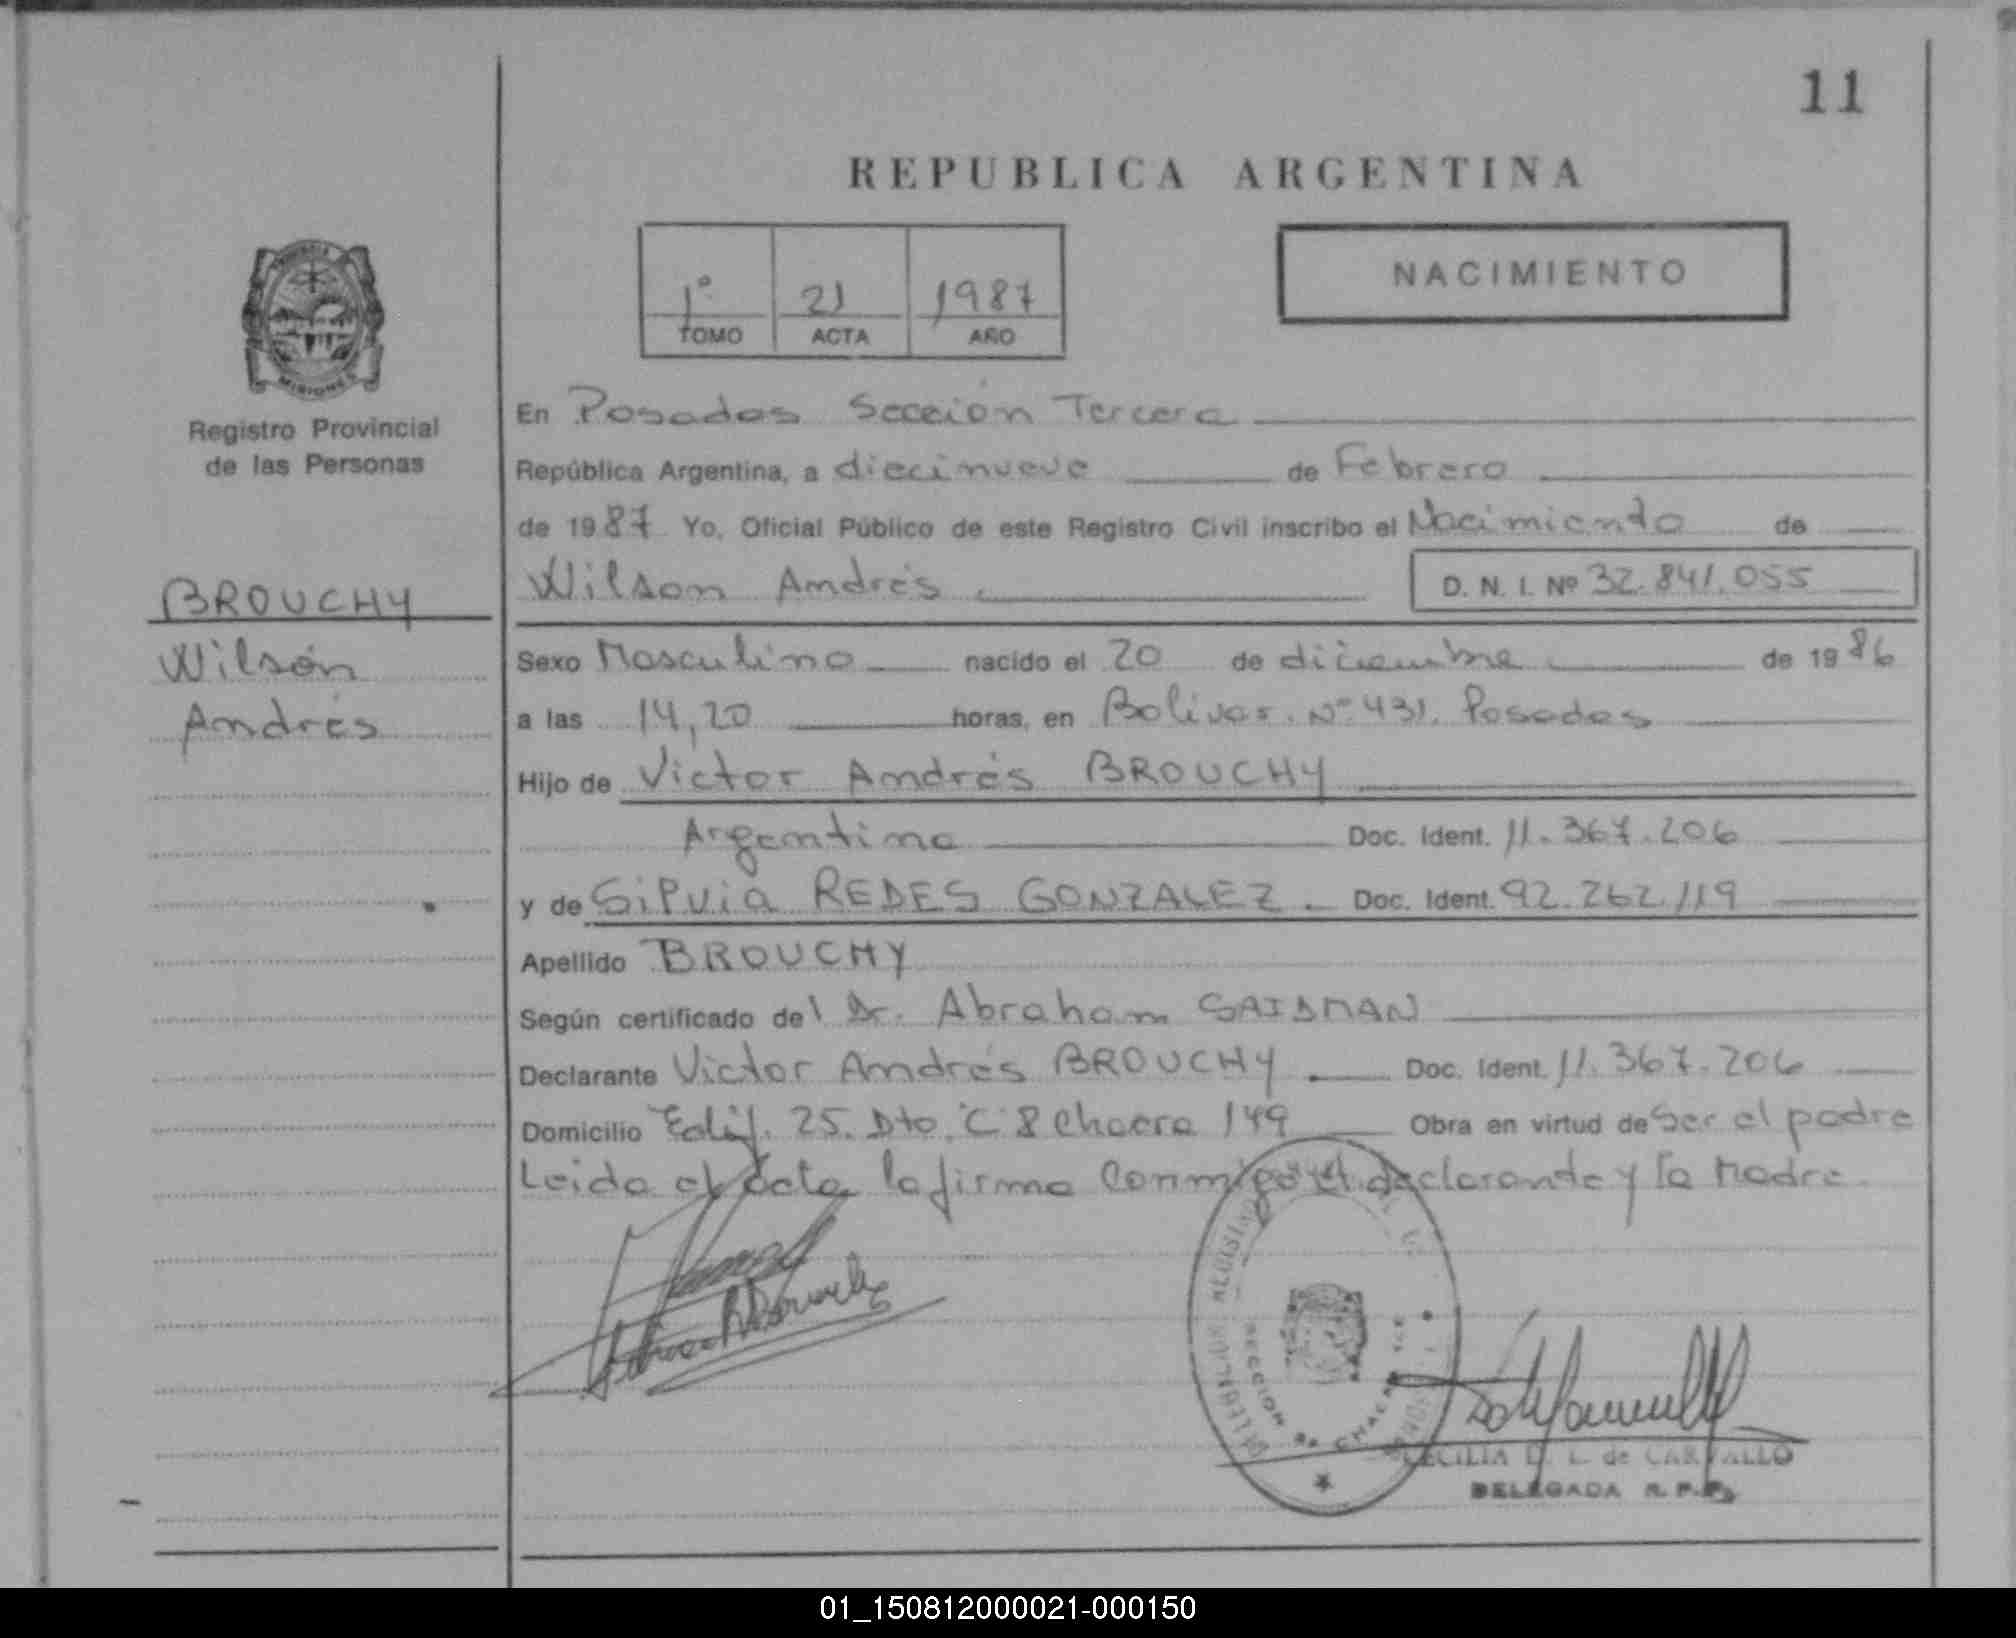 11
REPUBLICA ARGENTINA
1º 21 1987
TOMO ACTA AÑO
NACIMIENTO
MISIONES
Registro Provincial
de las Personas
BROUCHY
Wilsón
Andrés
En Posadas Sección Tercera
República Argentina, a diecinueve de Febrero
de 1987 Yo, Oficial Público de este Registro Civil inscribo el Nacimiento de
Wilson Andrés D. N. I. Nº 32.841.055
Sexo Masculino nacido el 20 de diciembre de 1986
a las 14,20 horas, en Bolivar. Nº 431. Posadas
Hijo de Victor Andrés BROUCHY
Argentino Doc. Ident. 11.367.206
y de Silvia REDES GONZALEZ. Doc. Ident. 92.262.119
Apellido BROUCHY
Según certificado del Dr. Abraham GAIDMAN
Declarante Victor Andrés BROUCHY Doc. Ident. 11.367.206
Domicilio Edif. 25. Dto. "C" 8 Chacra 149 Obra en virtud de Ser el padre
Leida el acta la firma Conmigo el declarante y la Madre.
SECCION
CECILIA D. L. de CARVALLO
DELEGADA R. P. P.
01_150812000021-000150